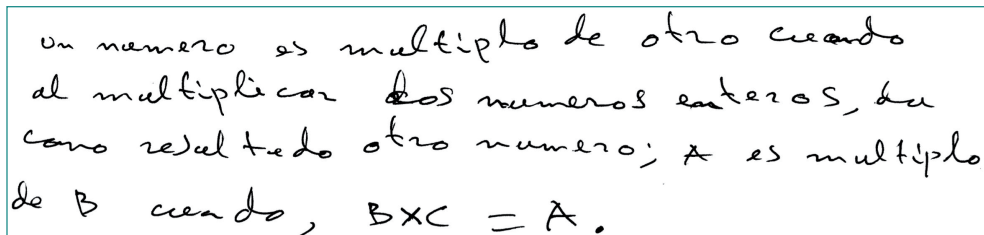 un numero es multiplo de otro cuando
al multiplicar dos numeros enteros, da
como resultado otro numero; A es multiplo
de B cuando, BXC = A.